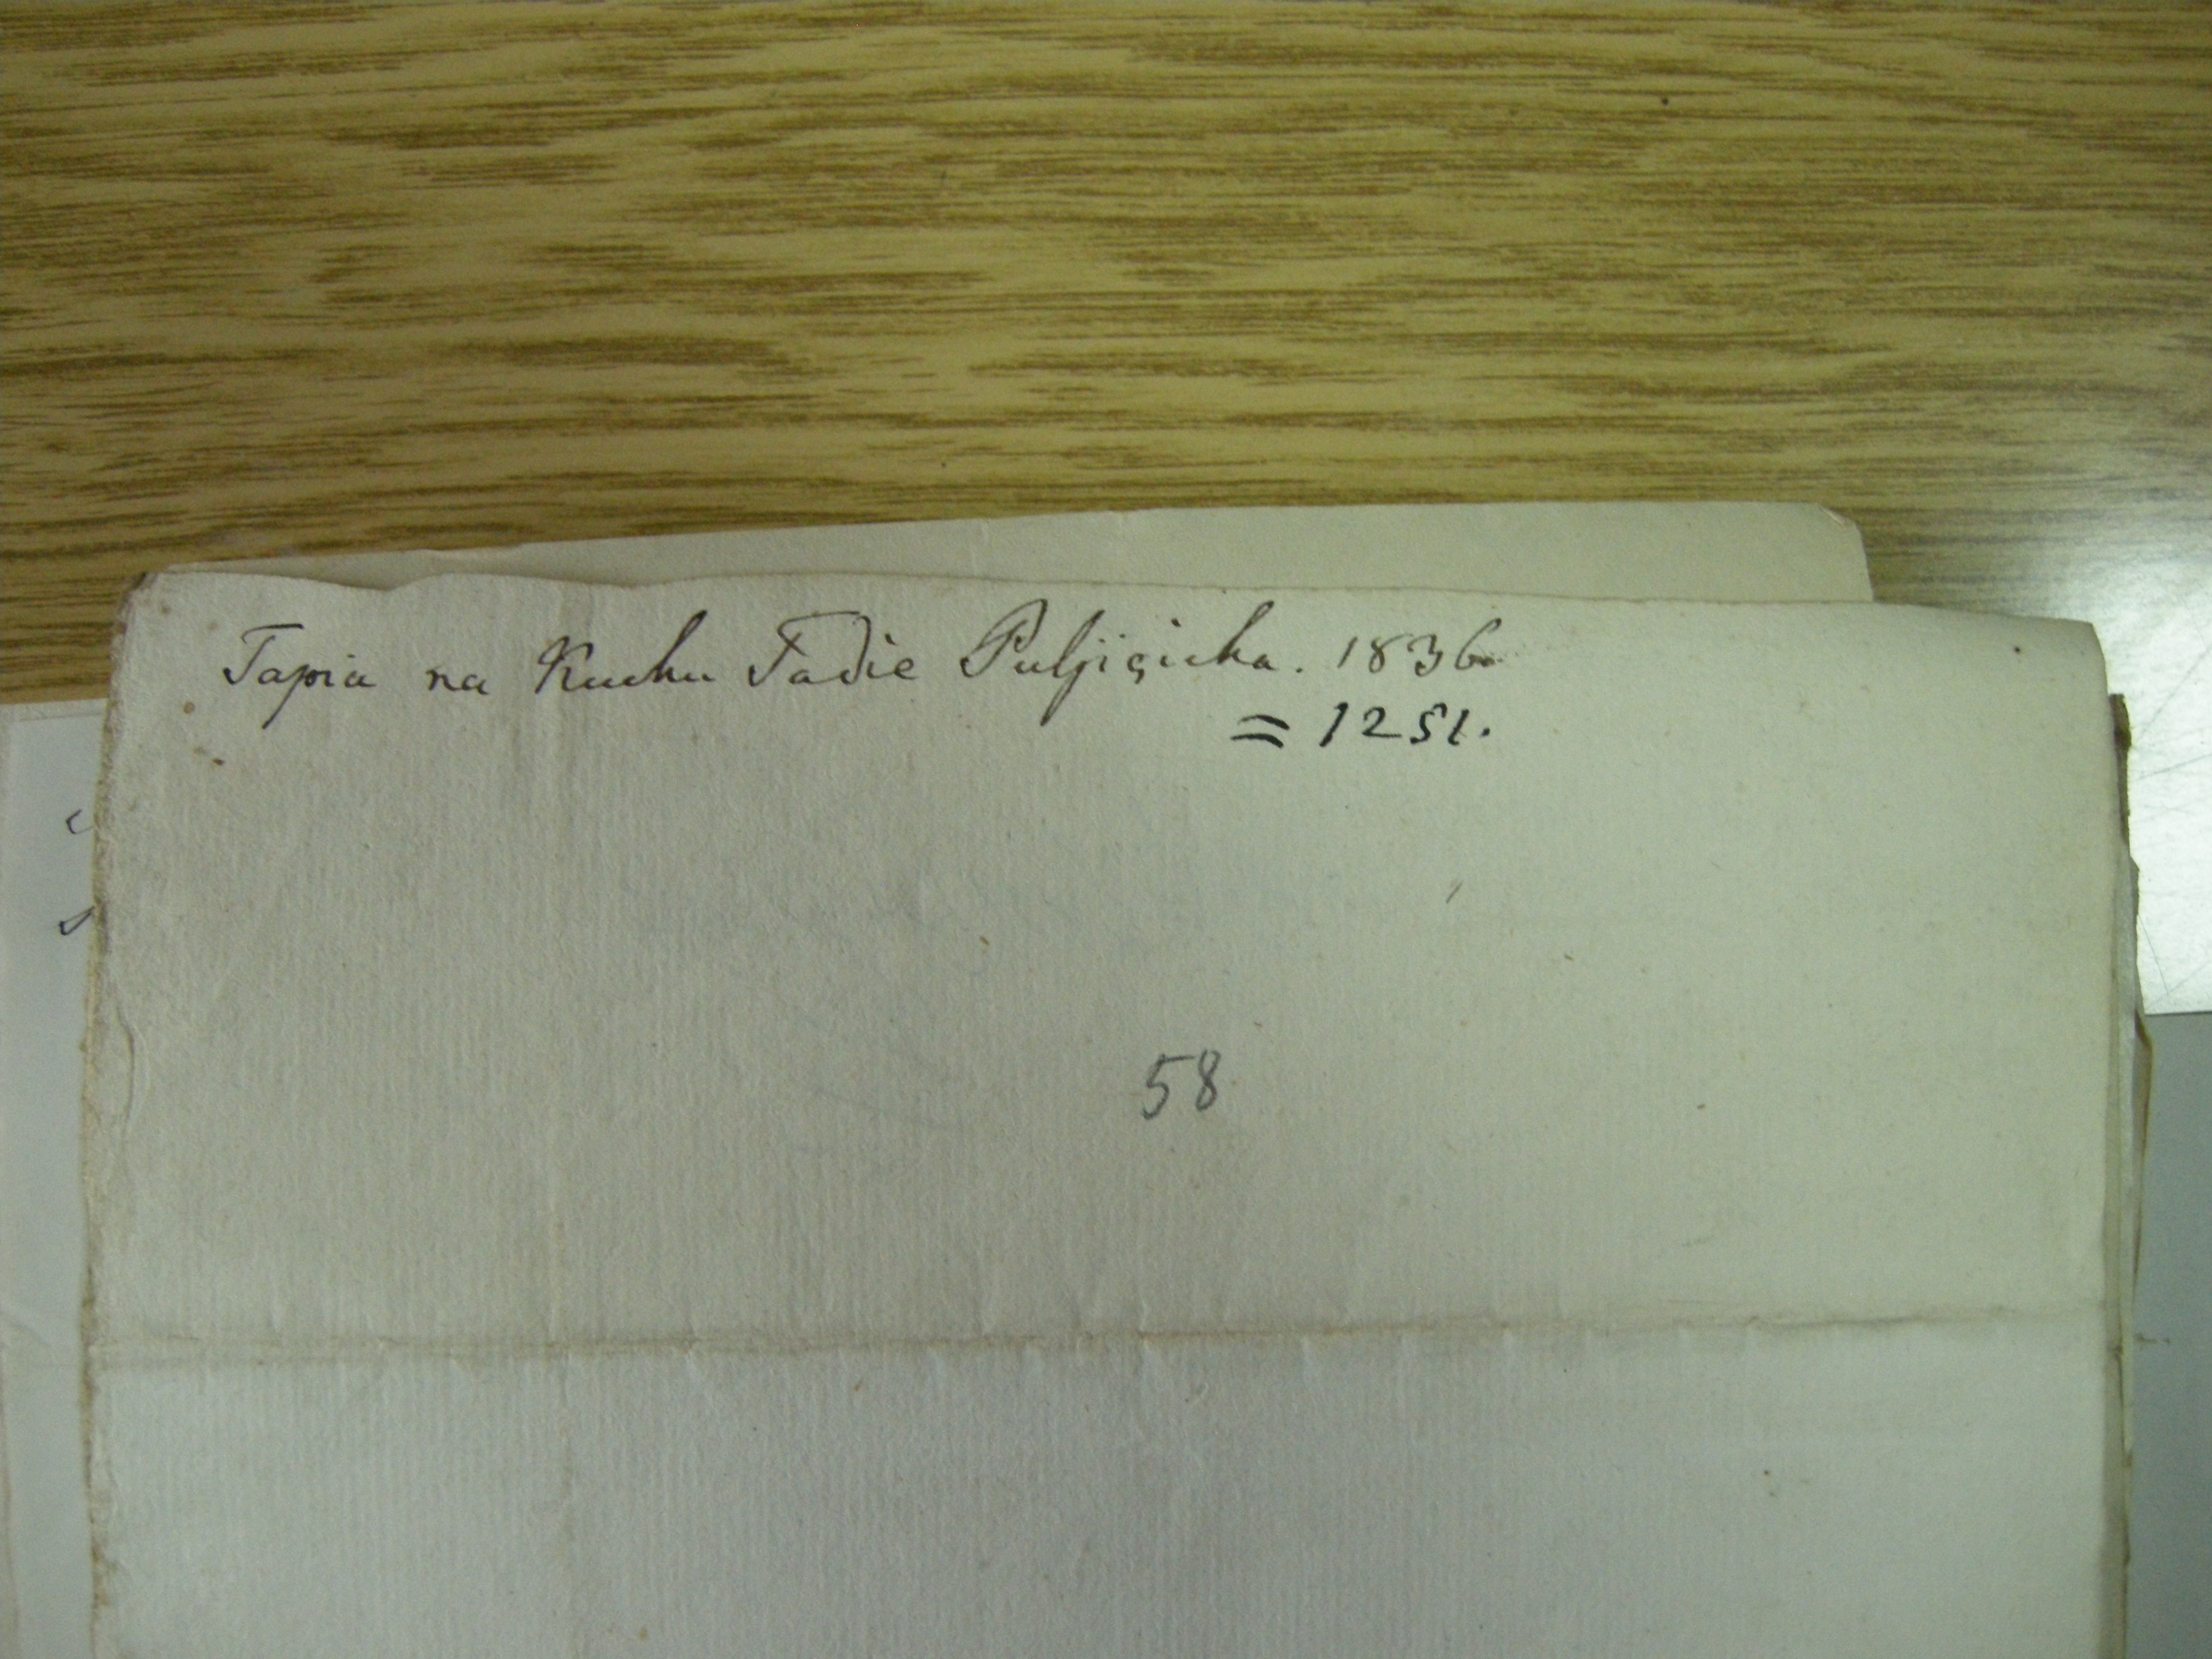 Tapia na Kuchu Tadie Puljiçicha. 1836.
= 1251.
58